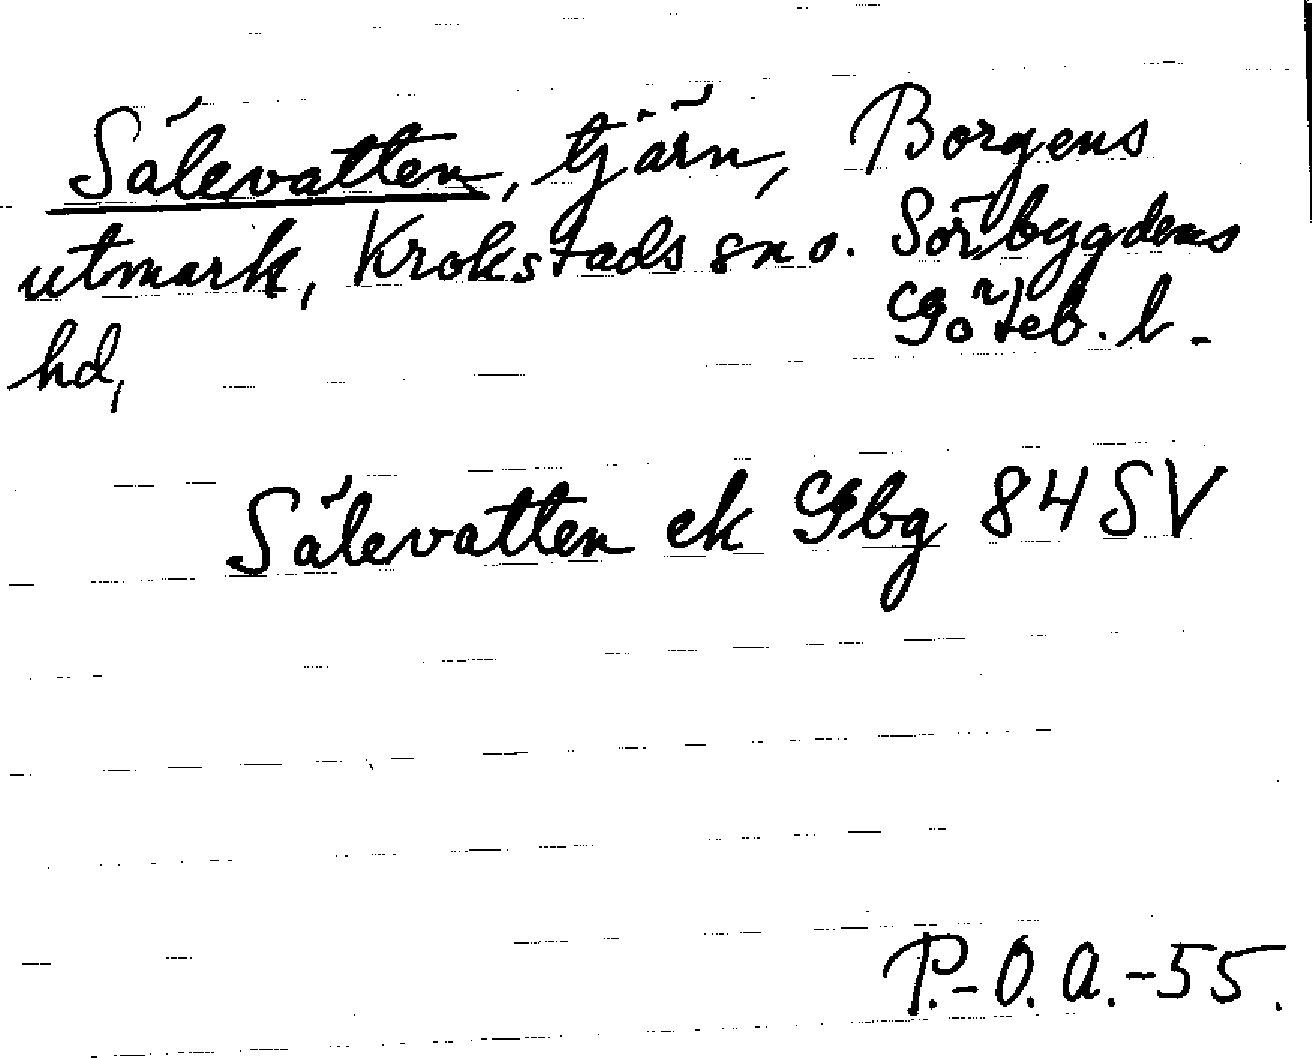 Sålevatten, tjärn, Borgens
utmark, Krokstads sn o. Sörbygdens
hd, Göteb. l.
Sålevatten ek Gbg 84 SV
P.-O. A.-55.